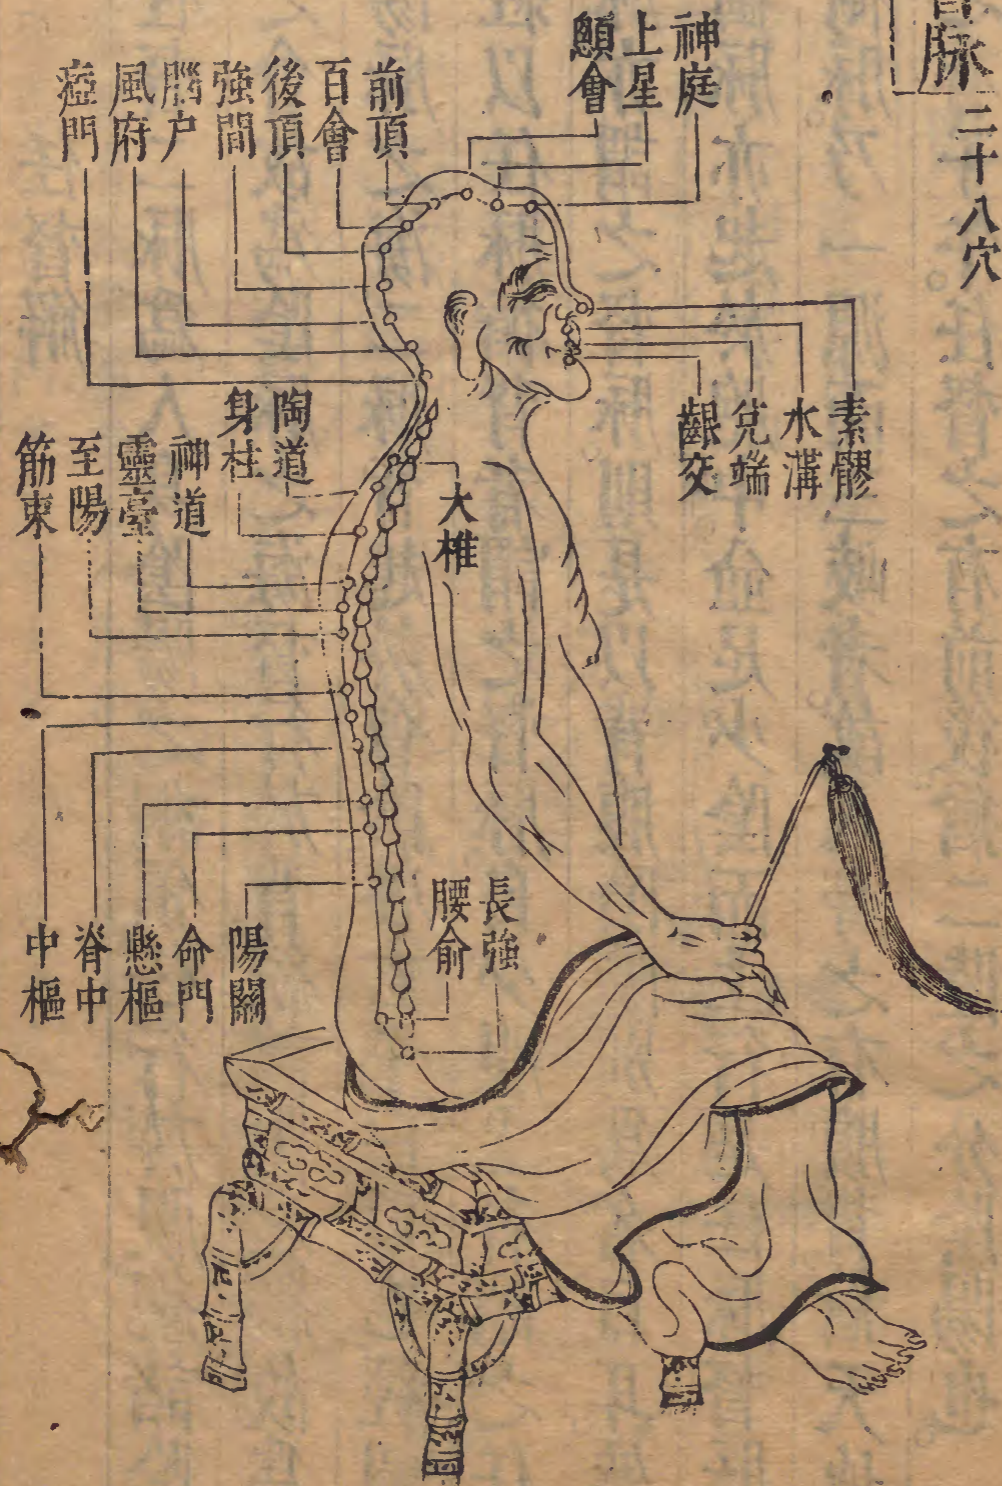 脉
二十八穴
神庭
上星
顖會
前頂
百會
後頂
強間
腦户
風府
瘂門
素髎
水溝
兌端
齦交
陶道
身柱
神道
靈臺
至陽
筋束
大椎
長強
腰俞
陽關
命門
懸樞
脊中
中樞